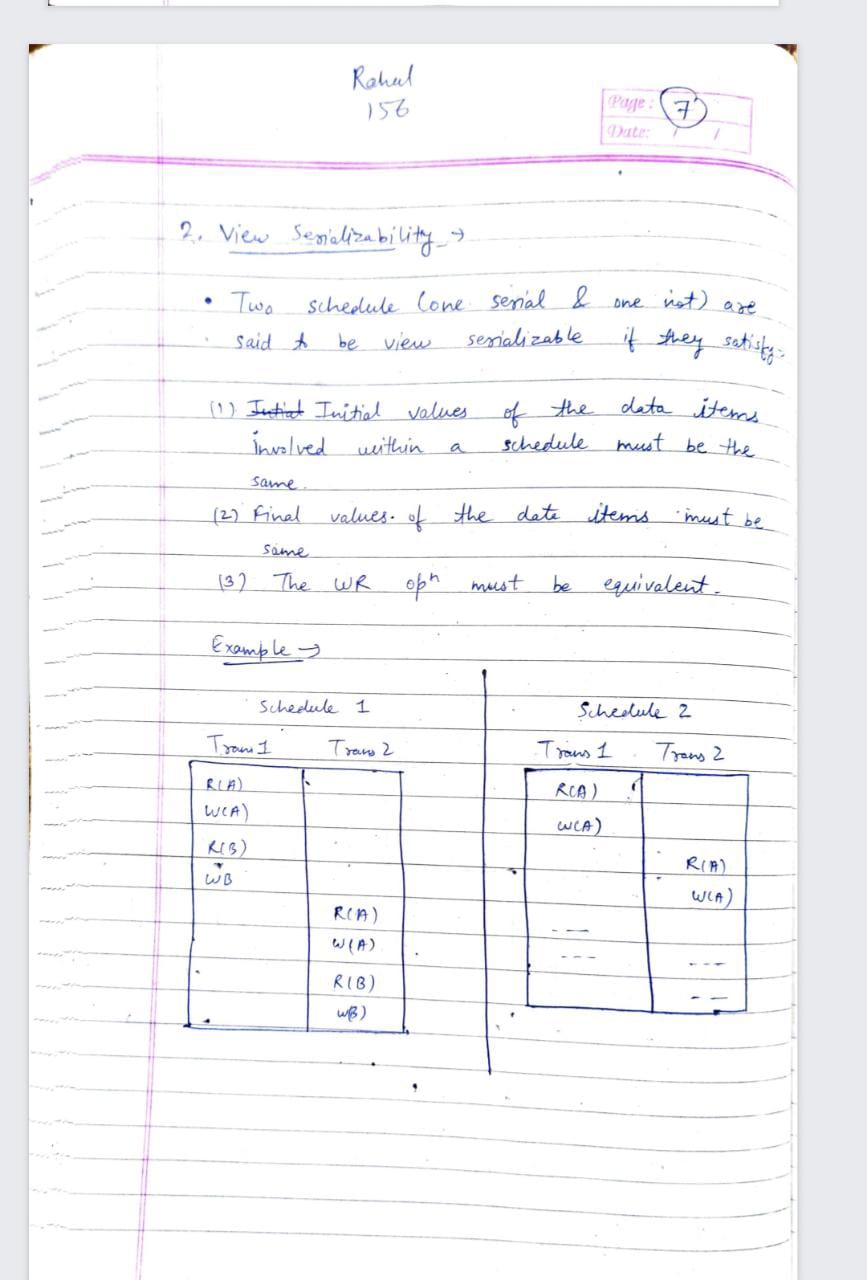 Rahul
156
Page: 7
Date: / /
2. View Serializability →
• Two schedule (one serial & one not) are
said to be view serializable if they satisfy:-
(1) Intial Initial values of the data items
involved within a schedule must be the
same.
(2) Final values of the date items must be
same
(3) The WR opn must be equivalent.
Example →
Schedule 1
Trans 1 Trans 2
R(A)
W(A)
R(B)
WB
R(A)
W(A)
R(B)
WB)
Schedule 2
Trans 1 Trans 2
R(A)
W(A)
R(A)
W(A)
---
---
---
--